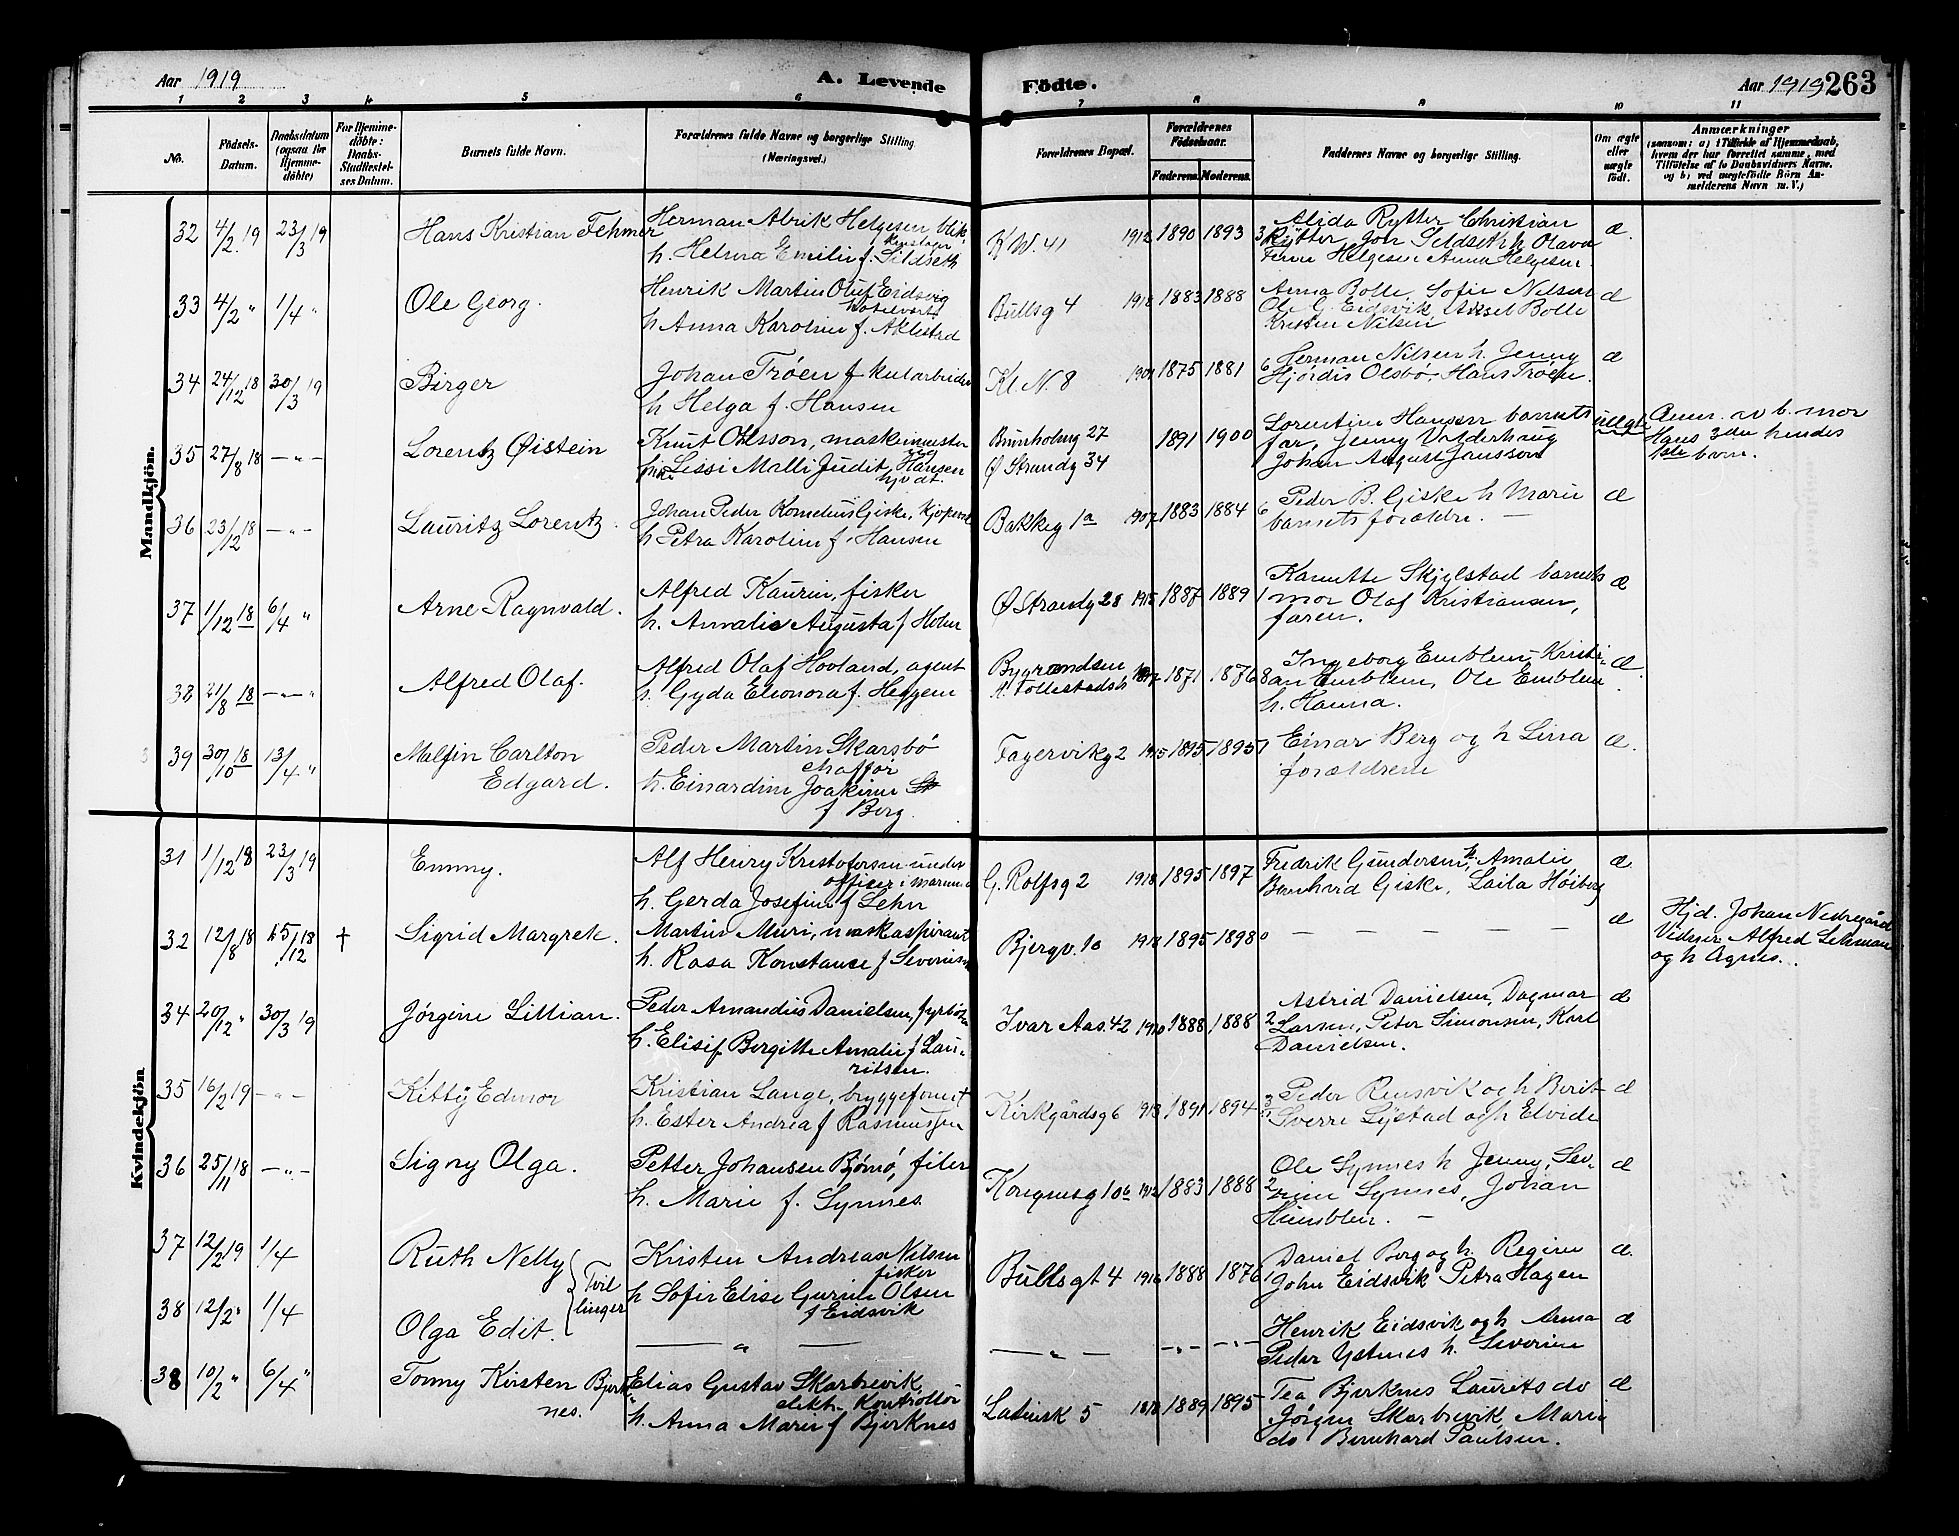 Aar 1919
A. Levende Födte.
Aar 1919 263
1 2 3 4 5 6 7 8 9 10 11
No.
Födsels-Datum.
Daabsdatum (ogsaa for Hjemme-döbte)
For Hjemme-döbte: Daabs-Stadfæstel-ses Datum.
Barnets fulde Navn.
Forældrenes fulde Navne og borgerlige Stilling (Næringsvei.)
Forældrenes Bopæl.
Forældrenes Födselsaar.
Faderens. Moderens.
Faddernes Navne og borgerlige Stilling.
Om ægte eller uægte födt.
Anmærkninger
(saasom: a) i Tilfælde af Hjemmedaab, hvem der har forrettet samme, med Tilföielse af to Daabsvidners Navne, og b) ved uægtefödte Börn An-melderens Navn m. V.)
Mandkjön.
32 4/2 19 23/3 19 Hans Kristian Fehmer
Herman Alrik Helgesen, blik-
h. Helma Emilie f. Sildseth
K.W. 41 1912 1890 1893
3 Alida Rytter Christian
Rytter, Jon Sildseth h. Olava
Helgesen Anna Helgesen. æ.
33 4/2 " 1/4 " Ole Georg.
Henrik Martin Oluf Eidsvig
h. Anna Karoline f. Aklestad
Bullsg 4 1918 1883 1888
Anna Bolle, Sofie Nilsen
Ole G. Eidsvik, Aksel Bolle
Kristen Nilsen æ
34 24/12 18 30/3 19 Birger
Johan Trøen fkularbeider
h. Helga f. Hansen
Kl N. 8 1901 1875 1881
6 Herman Nilsen h. Jenny
Hjördis Olsbö, Hans Trøen. æ
35 27/8 18 – " – Lorentz Øistein
Knut Ohlsson, maskinmester
Lissi Malli Judit Hansen
Bunholmg 27
Ø Strandg 34
1891 1900
Lorentine Hansen barnets
far, Jenny Valderhaug
Johan August Jonsson
uegte
Anm. av b. mor
Hans 3die hendes
1ste barn.
36 23/12 18 – " – Lauritz Lorentz.
Johan Peder Kornelius Giske,
h. Petra Karoline f. Hansen
Bakkeg 1a 1907 1883 1884
6 Peder B. Giske h Marie
barnets forældre. – æ
37 1/12 18 6/4 " Arne Ragnvald.
Alfred Kaurin, fisker
h. Amalie Augusta f Holm
Ø Strandg 28 1915 1887 1889
1 Kamitte Skjylstad barnets
mor Olaf Kristiansen,
faren. æ
38 21/8 18 – " – " Alfred Olaf.
Alfred Olaf Hovland, agent
h. Gyda Eleonora f. Heggem
1897 1871 1876
8 Ingeborg Emblem Kristi-
an Emblem, Ole Emblem
h. Hanna. æ.
39 30/10 18 13/4 " Malfin Carlton
Edgard.
Peder Martin Skarsbö
chafför
h. Einardine Joakime
f Berg.
Fagervikg 2 1915 1895 1895
1 Einar Berg og h Lina
forældrene æ.
Kvindekjön
31 1/12 18 23/3 19 Emmy.
Alf Henry Kristofersen under
officer i marinen
h. Gerda Josefine f Lehn
G. Rolfsg 2 1918 1895 1897
Fredrik Gundersen, h Amalie
Bernhard Giske, Laila Höiberg æ
32 12/8 18 15/12 18 † Sigrid Margrete.
Martin Muri, maskaspirant
h. Rosa Konstance f Severinsen
Bjergv. 10 1918 1895 1898 0
– – – – – æ
Hjd. Johan Nedregård
Vidner Alfred Lehmann
og h Agnes.
34 20/12 " 30/3 19 Jörgine Lillian.
Peder Amandus Danielsen, fyrböter
h. Elisif Bergitte Amalie f Lau-
ritsen.
Ivar Aas. 42 1910 1888 1888
2 Astrid Danielsen, Dagmar
Larsen, Peter Simonsen, Karl
Danielsen. æ
35 16/2 19 – " – Kitty Edmor
Kristian Lange, bryggeformt
h. Ester Andrea f Rasmussen
Kirkgårdsg 6 1913 1891 1894
3 Peder Rensvik og h Berit
Sverre Lystad og h Elvide æ
36 25/11 18 – " – Signy Olga.
Petter Johansen Bjørnö, filer
h. Marie f. Synnes.
Kongensg 10b 1912 1883 1888
2 Ole Synnes h Jenny, Sev-
rine Synnes, Johan
Humblen. – æ
37 12/2 19 1/4 Ruth Nelly
Tvil
linger
Kristen Andreas Nilsen
fisker
h Sofie Elise Gurine Olsen
f Eidsvik
Bullsgt 4 1916 1888 1876
1 Daniel Berg og h. Regine
John Eidsvik Petra Hagen æ.
38 12/2 " 1/4 Olga Edit.
– " –
– " – – " – – " –
Henrik Eidsvik og h Anna
Peder Ystenes h. Severine æ
38 10/2 " 6/4 " Tonny Kirsten Bjerk
nes.
Elias Gustav Skarbrevik,
elekt. Kontrollör
h. Anna Marie f Bjerknes
Latinsk 5 1918 1889 1895
Tea Bjerknes Laurits do
Jörgen Skarbrevik, Marie
do Bernhard Paulsen. æ